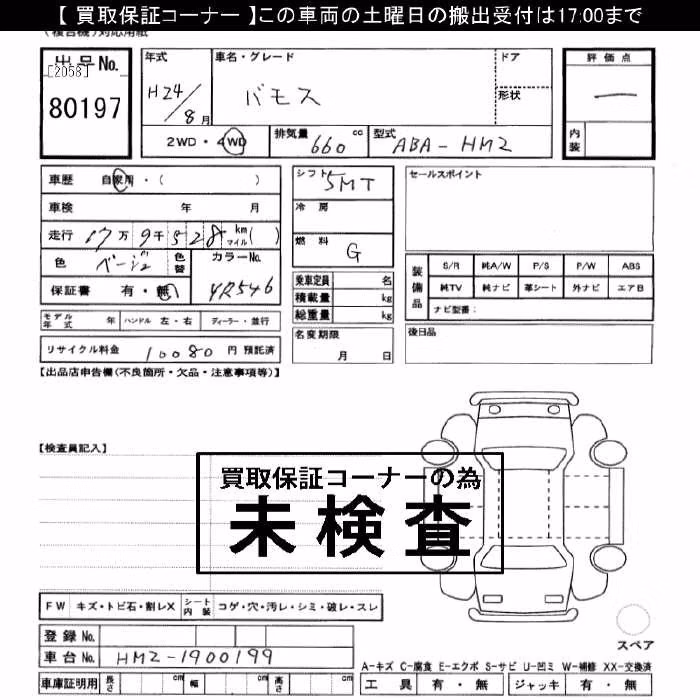 【 買取保証コーナー 】この車両の土曜日の搬出受付は17:00まで
出品No. 年式 車名・グレード ドア 評価点
[2058]
80197 H24/8月 バモス 形状 ―
2WD・4WD 排気量 660 cc 型式 ABA-HM2 内装
車歴 自家用・( ) シフト 5MT セールスポイント
車検 年 月 冷房
走行 17万9千528 km マイル( ) 燃料 G
色 ベージュ 色替 カラーNo. 装備品 S/R 純A/W P/S P/W ABS
保証書 有・無 YR546 乗車定員 名 純TV 純ナビ 革シート 外ナビ エアB
積載量 kg ナビ型番:
モデル年式 年 ハンドル 左・右 ディーラー・並行 総重量 kg
リサイクル料金 10080 円 預託済 名変期限 月 日 後日品
【出品店申告欄(不良箇所・欠品・注意事項等)】
【検査員記入】
買取保証コーナーの為
未検査
FW キズ・トビ石・割レX シート内装 コゲ・穴・汚レ・シミ・破レ・スレ
登録No.
スペア
車台No. HM2-1900199
A-キズ C-腐食 E-エクボ S-サビ U-凹ミ W-補修 XX-交換済
車庫証明用 長さ cm 幅 cm 高さ cm 工具 有・無 ジャッキ 有・無